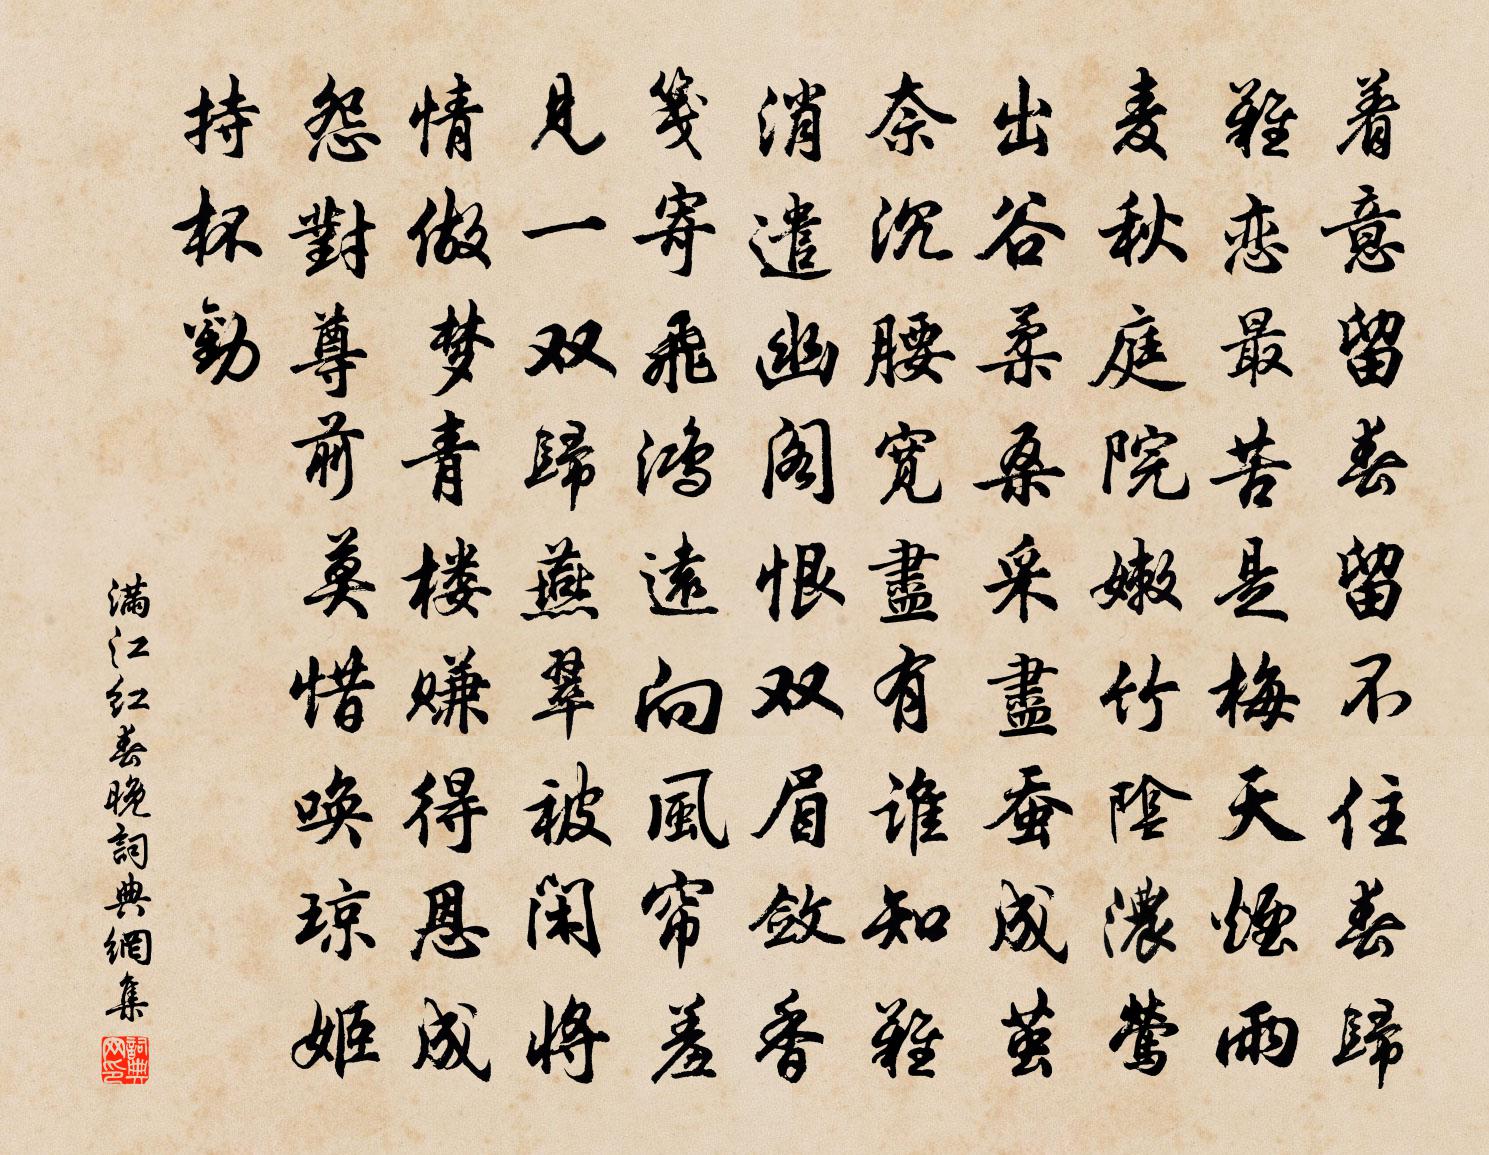 着意留春留不住春歸
難恋最苦是梅天煙雨
麦秋庭院嫩竹陰濃鶯
出谷柔桑采盡蚕成茧
奈沉腰寛盡有谁知難
消遣幽阁恨双眉敛香
笺寄飛鴻遠向風帘羞
見一双歸燕翠被闲将
情做梦青楼赚得恩成
怨對尊前莫惜唤琼姬
持杯勸
满江红春晚詞典網集
詞典网印